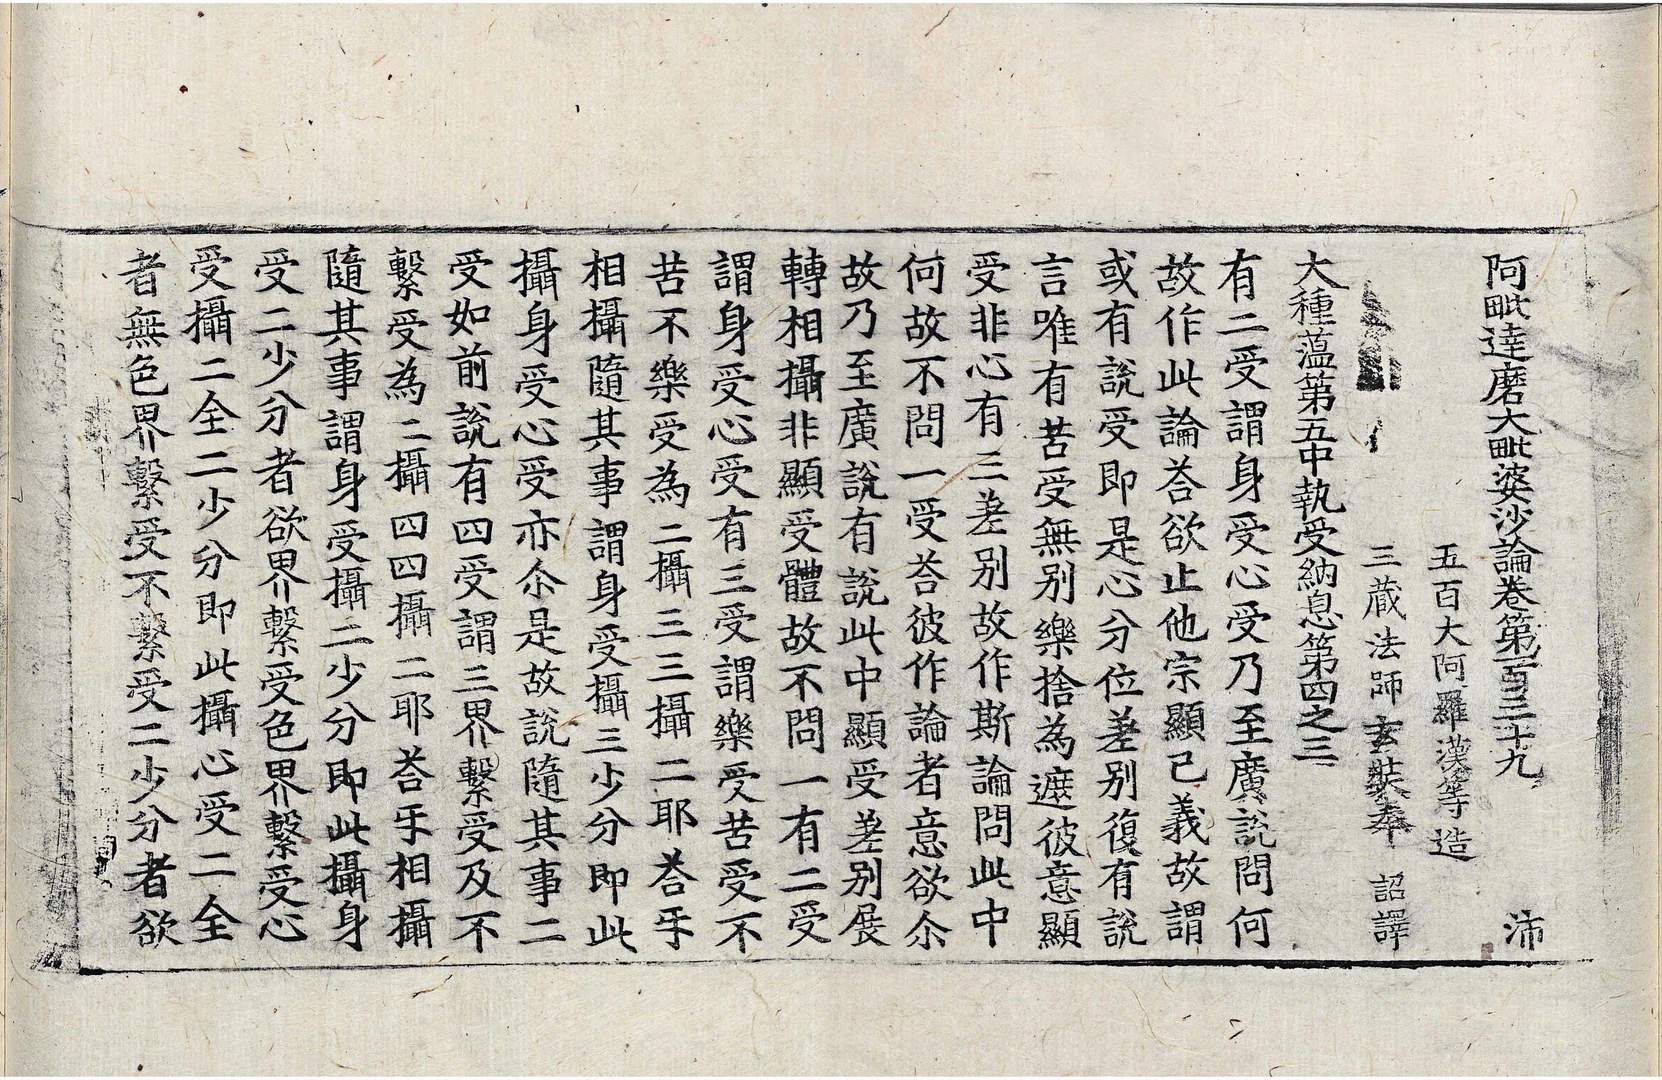 阿毗達磨大毗婆沙論卷第一百三十九　沛
五百大阿羅漢等造
三藏法師玄奘奉　詔譯
大種蘊第五中執受納息第四之三
有二受謂身受心受乃至廣說問何
故作此論荅欲止他宗顯己義故謂
或有說受即是心分位差别復有說
言唯有苦受無别樂捨為遮彼意顯
受非心有三差别故作斯論問此中
何故不問一受荅彼作論者意欲尒
故乃至廣說有說此中顯受差别展
轉相攝非顯受體故不問一有二受
謂身受心受有三受謂樂受苦受不
苦不樂受為二攝三三攝二耶荅㸦
相攝隨其事謂身受攝三少分即此
攝身受心受亦尒是故說隨其事二
受如前說有四受謂三界繫受及不
繫受為二攝四四攝二耶荅㸦相攝
隨其事謂身受攝二少分即此攝身
受二少分者欲界繫受色界繫受心
受攝二全二少分即此攝心受二全
者無色界繫受不繫受二少分者欲